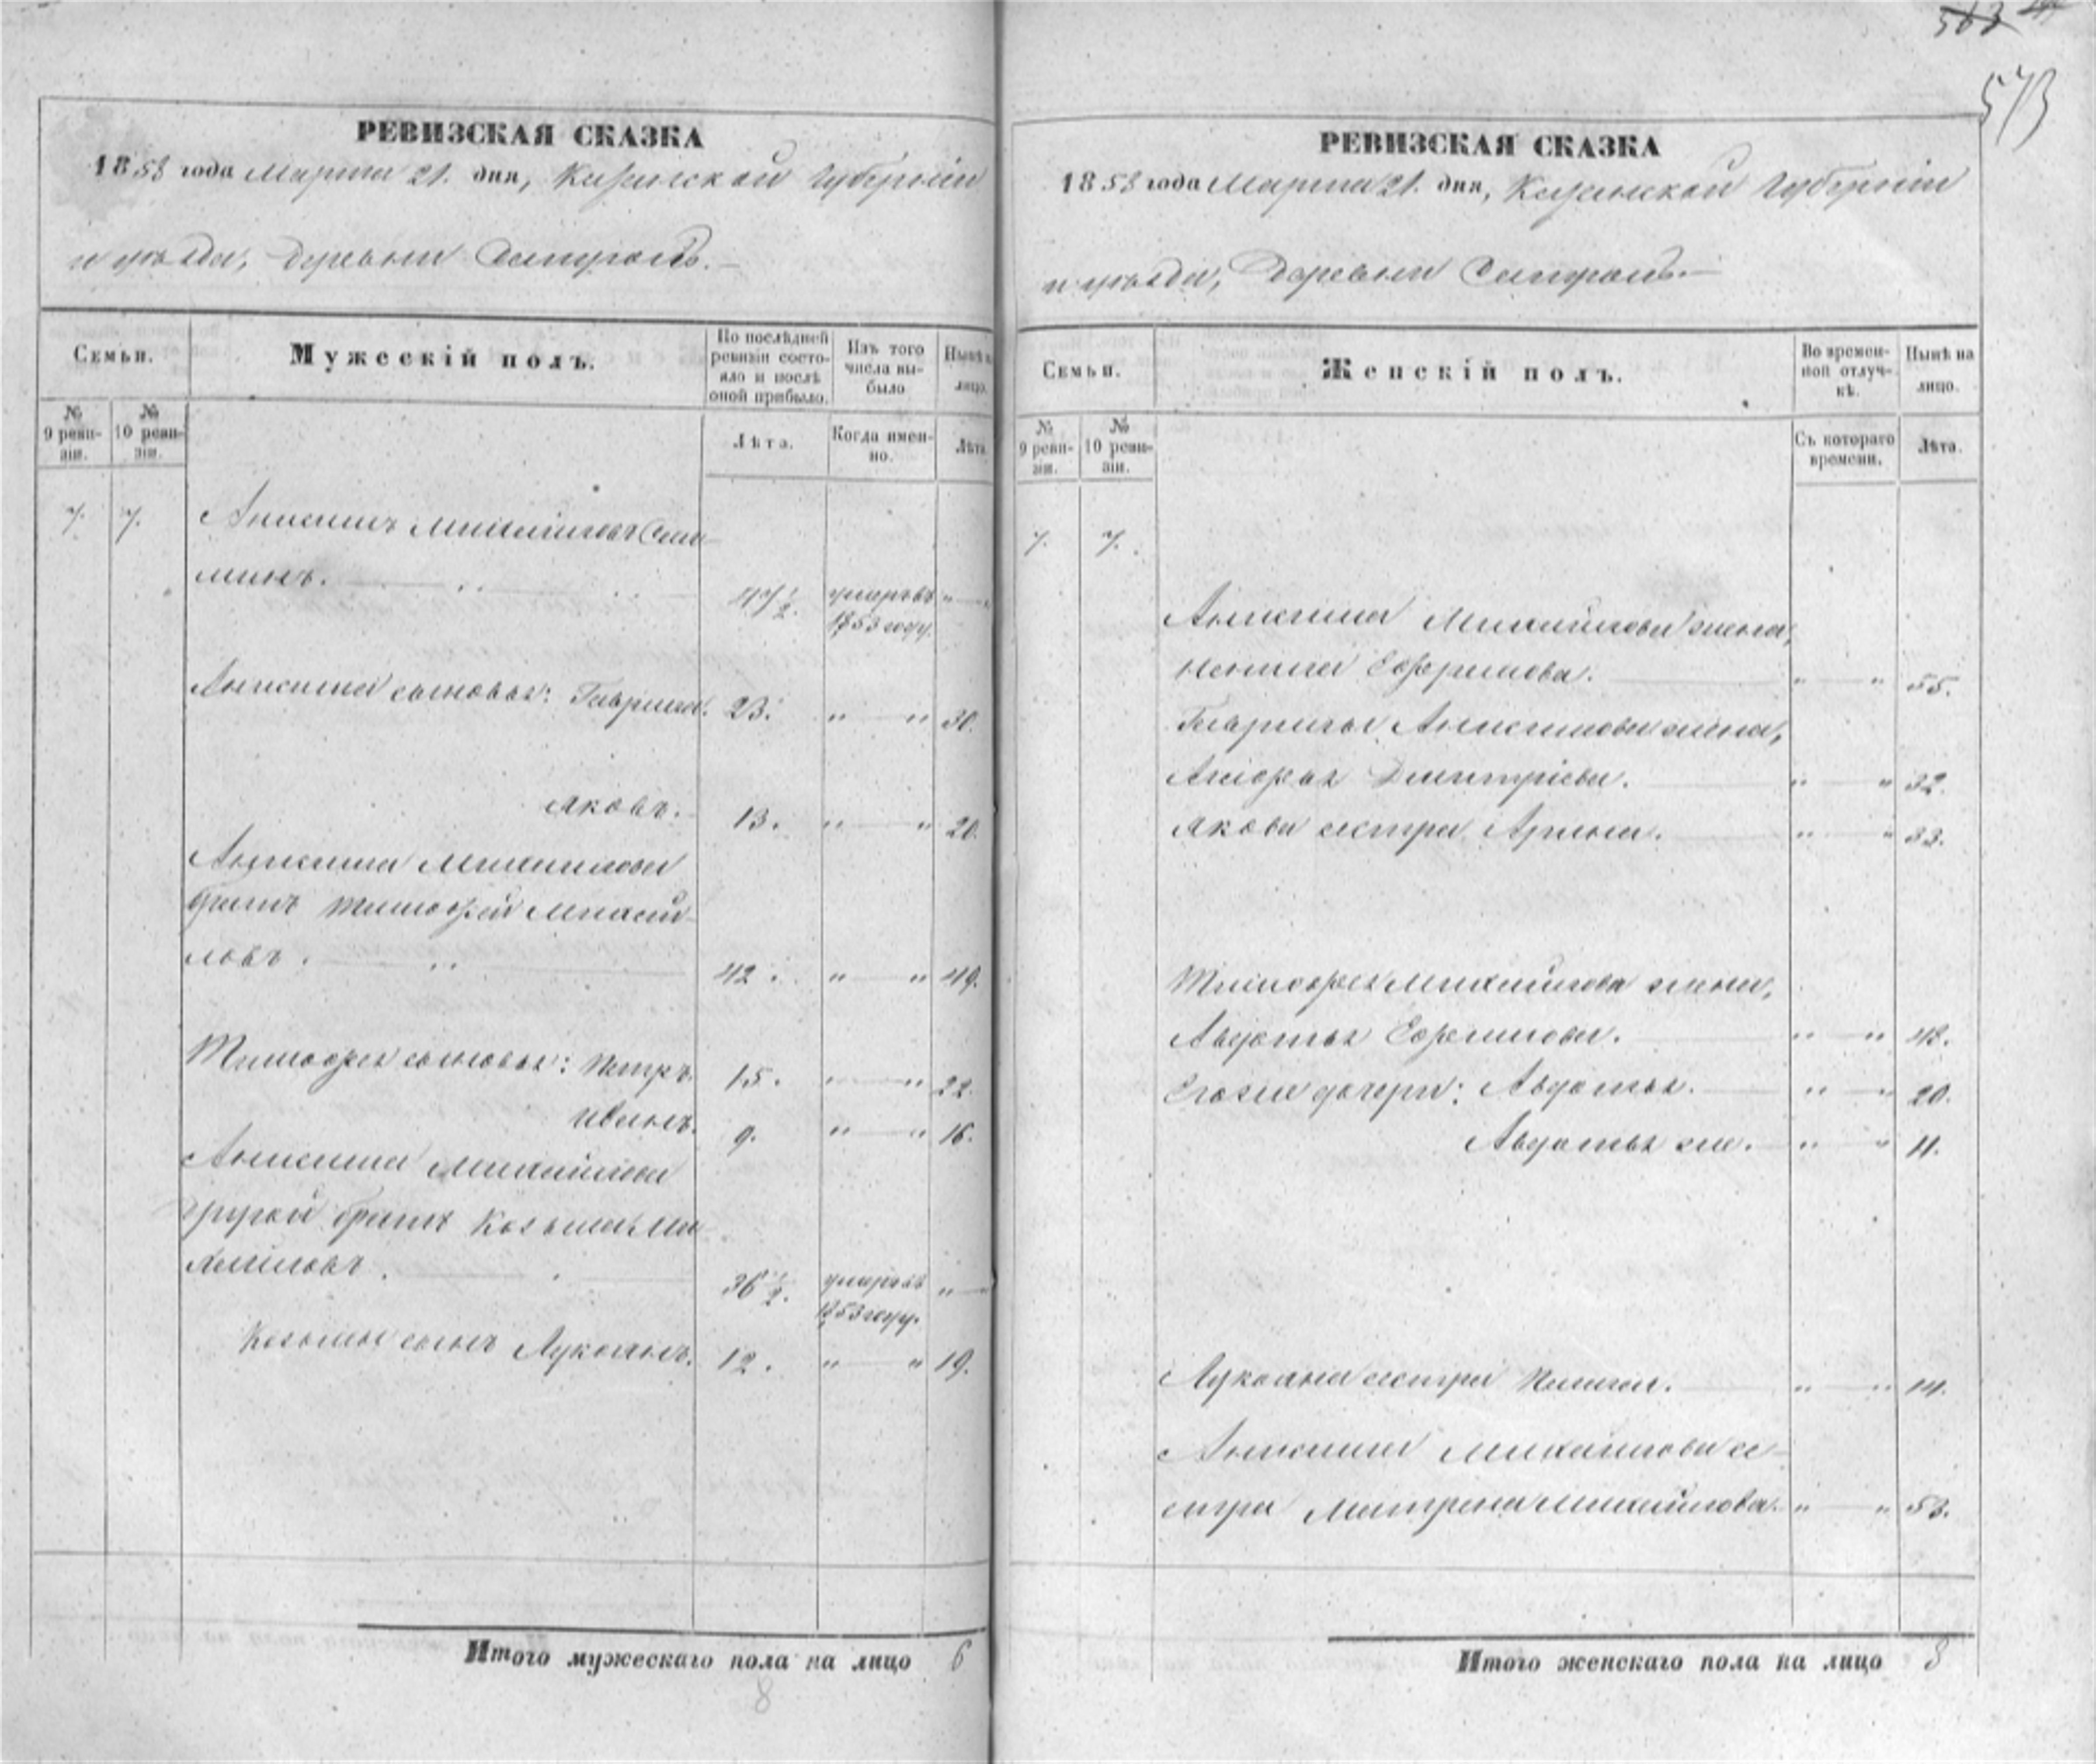 563
573
РЕВИЗСКАЯ СКАЗКА
1858 года Марта 21. дня, Казанской Губерніи
и уѣзда, деревни
Семьи.
Мужескій полъ.
По послѣдней ревизіи состояло и послѣ оной прибыло.
Изъ того числа выбыло
Нынѣ на лицо.
№ 9 ревизіи.
№ 10 ревизіи.
Лѣта.
Когда именно.
Лѣта.
7. 7. Анисимъ Михайловъ Сели
минъ. 47½. умеръ въ „ — „
1853 году.
Анисима сыновья: Гаврила. 23. „ — „ 30.
Яковъ. 13. „ — „ 20.
Анисима Михайлова
братъ Тимофей Михай
ловъ. 42. „ — „ 49.
Тимофея сыновья: Петръ. 15. „ — „ 22.
Иванъ. 9. „ — „ 16.
Анисима Михайлова
другой братъ Козьма Ми
хайловъ. 36½. умеръ въ „ — „
1853 году.
Козьмы сынъ Лукоянъ. 12. „ — „ 19.
Итого мужескаго пола на лицо 6
8
РЕВИЗСКАЯ СКАЗКА
1858 года Марта 21. дня, Казанской Губерніи
и уѣзда, Деревни
Семьи.
Женскій полъ.
Во временной отлучкѣ.
Нынѣ на лицо.
№ 9 ревизіи.
№ 10 ревизіи.
Съ котораго времени.
Лѣта.
7. 7.
Анисима Михайлова жена,
Ненила Ефремова. „ — „ 55.
Гаврилы Анисимова жена,
Дмитріева. „ — „ 32.
Якова сестра Арина. „ — „ 33.
Тимофея Михайлова жена,
Авдотья Ефремова. „ — „ 48.
Егоже дочери: Авдотья. „ — „ 20.
Авдотья же. „ — „ 11.
Лукояна сестра Пелагея. „ — „ 14.
Анисима Михайлова се
стра Матрена Михайлова. „ — „ 53.
Итого женскаго пола на лицо 8